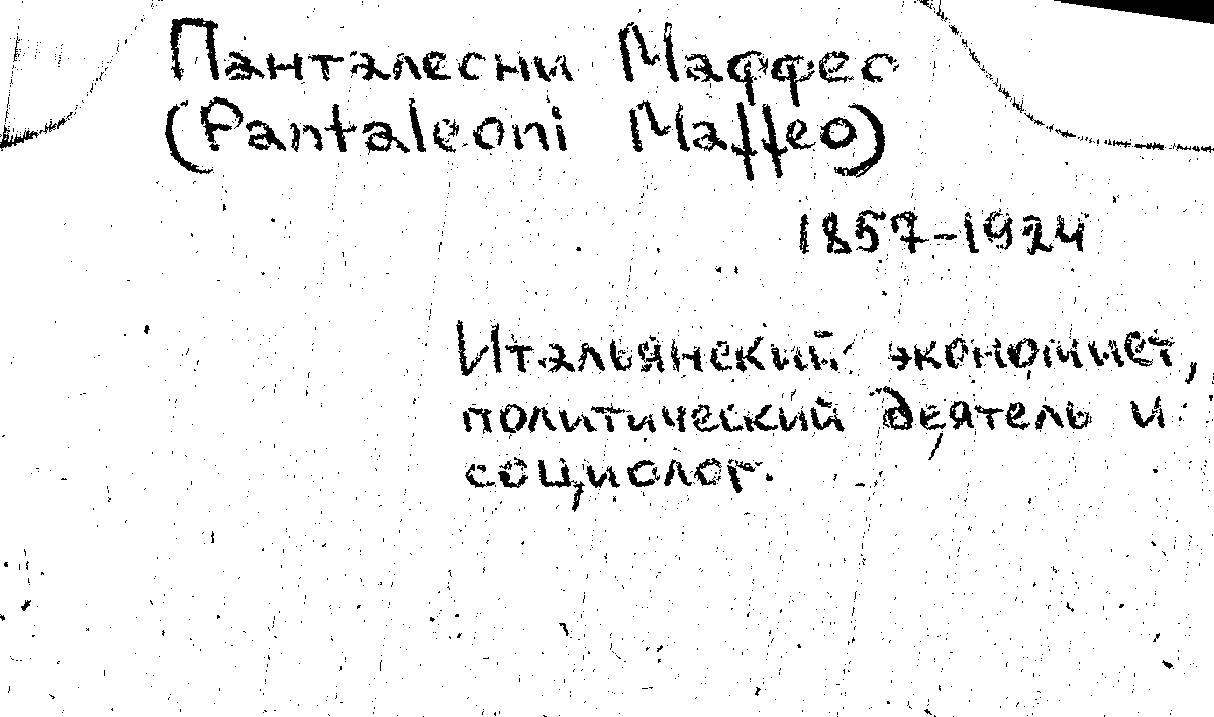 Панталеони Маффео
(Pantaleoni Maffeo)
1857-1924
Итальянский экономист,
политический деятель и
социолог.